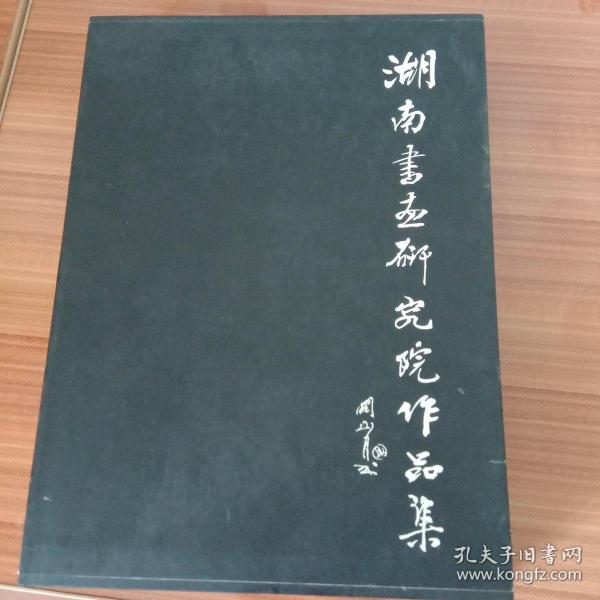 湖南书画研究院作品集
关山月
孔夫子旧书网
www.kongfz.com